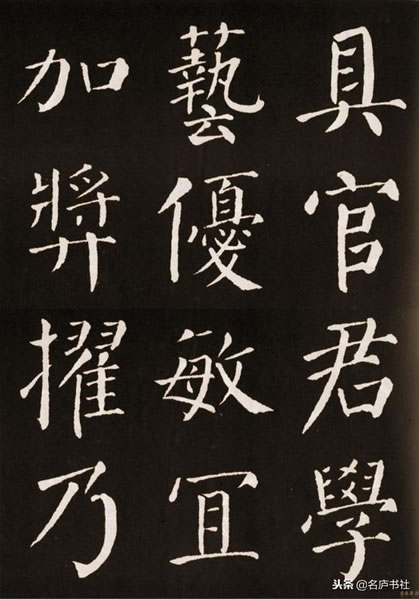 具官君學
藝優敏宜
加奬擢乃
头条@名庐书社